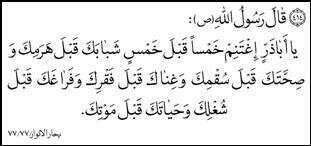 ﴿٤١٤﴾ قَالَ رَسُولُ اللهِ (ص):
يا اَباذَرٍّ اِغْتَنِمْ خَمْساً قَبْلَ خَمْسٍ شَبٰابَكَ قَبْلَ هَرَمِكَ وَ
صِحَّتَكَ قَبْلَ سُقْمِكَ وَغِناكَ قَبْلَ فَقْرِكَ وَفَراغَكَ قَبْلَ
شُغْلِكَ وَحَيٰاتَكَ قَبْلَ مَوْتِكَ.
بحار الانوار ٧٧/٧٧